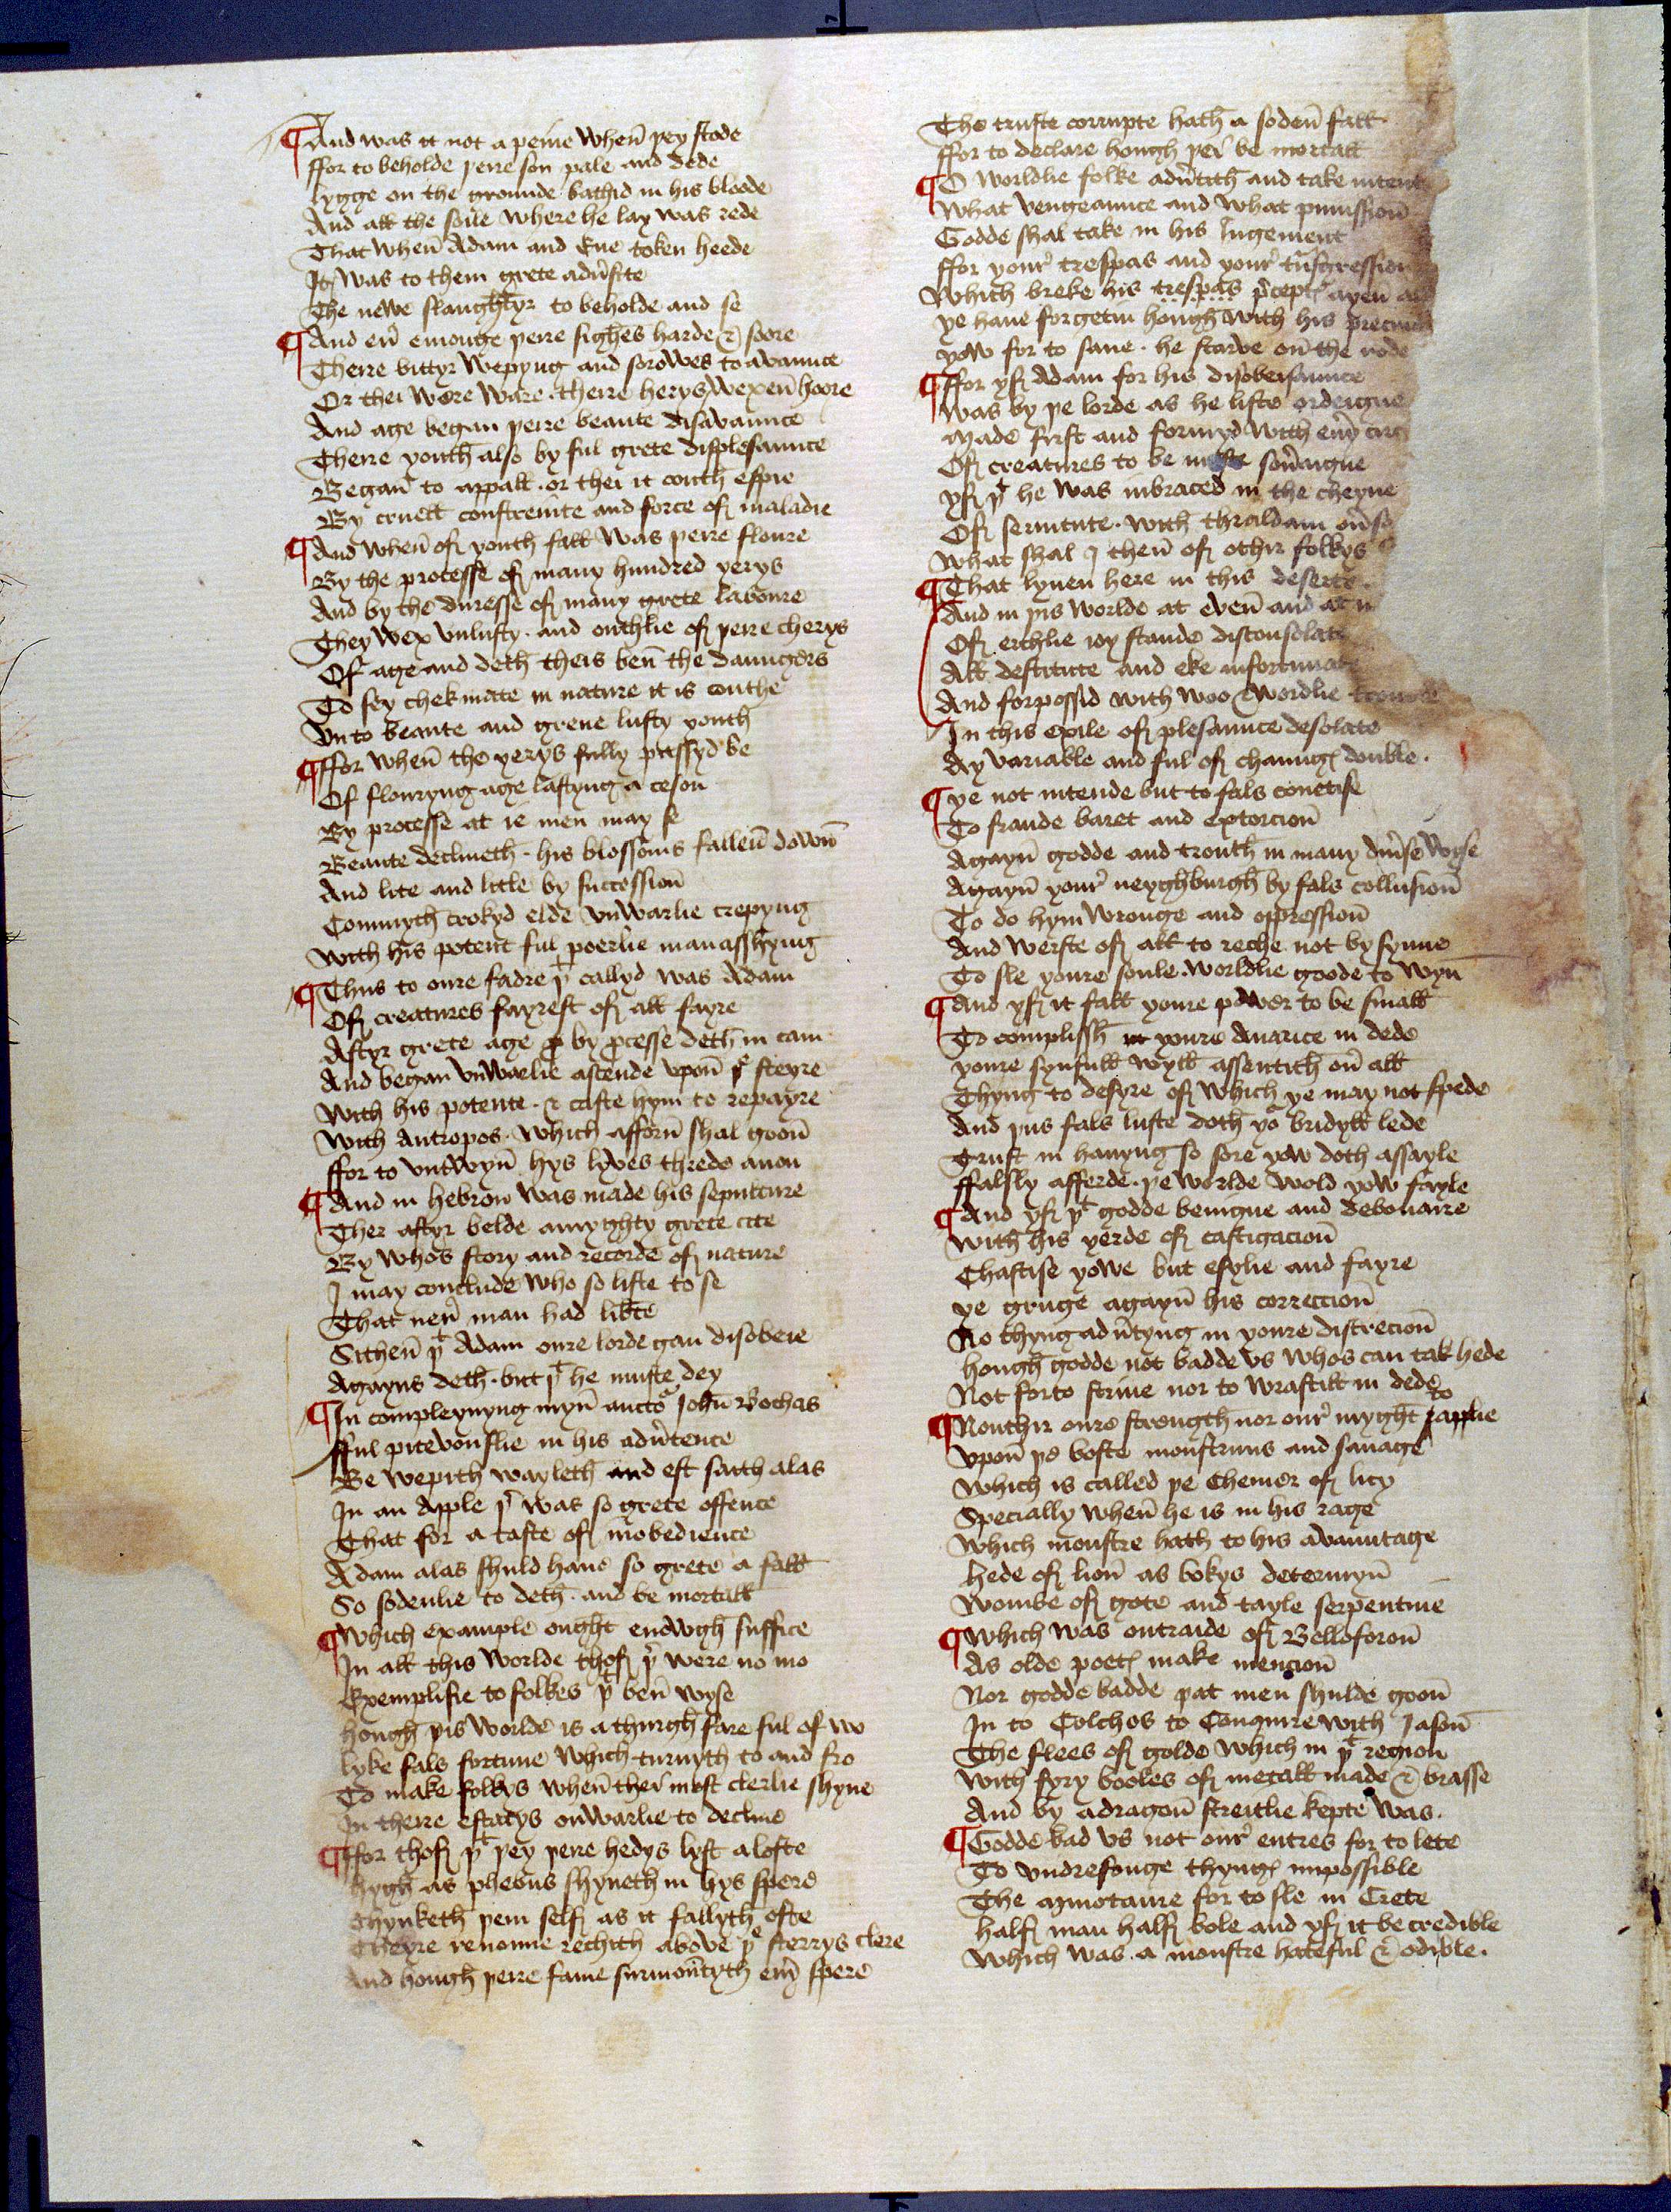 ¶ And was it not a peine when̄ þey stode
ffor to beholde þeire son pale and dede
lygge on the grounde bathid in his bloode
And all the soile where he lay was rede
That when̄ Adam and Eue token heede
It was to them grete adu̓site
The newe slaughtyr to beholde and se
¶ And eu̓ emonge þeire sighes harde & soore
Theire bittyr wepyng and sorowes to avaunce
Or thei were ware theire herys wexen̄ hoore
And age began þeire beaute disavaunce
Theire youth also by ful grete displesaunce
Began̄ to appall . or thei it couth espie
By cruell constreinte and force of maladie
¶ And when̄ of youth fall was þeire floure
By the processe of many hundred yerys
And by the duresse of many grete laboure
They wex vnlusty . and outhlie of þeire cherys
Of age and deth theis ben̄ the daungers
To sey chekmate in nature it is couthe
Vnto beaute and grene lusty youth
¶ ffor when̄ the yerys fully passyd be
Of flouryng age lastyng a ceson
By processe at ie men may se
Beaute declineth . his blossoms fallen̄ down̄
And lite and litle by succession̄
Commyth crokyd elde vnwarlie crepyng
With his potent ful poerlie manasshyng
¶ Thus to oure fadre þͭ callyd was Adam
Of creatures fayrest of all fayre
Aftyr grete age þ by ꝓcesse deth in cam
And began vnwarlie ascende vpon̄ þͤ steyre
With his potente . & caste hym to repayre
With Antropos . which afforn̄ shal goon̄
ffor to vntwyn̄ hys lyves threde anon
¶ And in hebron was made his sepulture
Ther aftyr belde amyghty grete cite
By whos story and recorde of nature
I may conclude who so liste to se
That neu̓ man had lib̓te
Sithen̄ þͭ Adam oure lorde gan disobeie
Agayns deth . but þͭ he muste dey
¶ In compleynyng myn̄ aucto͛ John̄ Bochas
fful pitevouslie in his adu̓tence
Be wepith wayleth and eft saith alas
In an Apple þ͛ was so grete offence
That for a taste of inobedience
Adam alas shuld haue so grete a fall
So sodenlie to deth . and be mortall
¶ Which example ought enowgh suffice
In all this worlde thof þ͛ were no mo
Exemplifie to folkes þͭ ben̄ wyse
hough þis worlde is a thurgh fare ful of wo
lyke fals fortune which turnyth to and fro
To make folkys when̄ thei most clerlie shyne
In theire estatys onwarlie to decline
¶ ffor thof þͭ þey þeire hedys lyft alofte
hygh as phebus shyneth in hys spere
Thynketh þem self as it fallyth ofte
Theyre renoune rechith above þͤ sterrys clere
And hough þeire fame surmountyth eu̓y spere
The truste corrupte hath a soden̄ fall
ffor to declare hough þei be mortall
¶ O worldlie folke adu̓tith and take intent
What vengeaunce and what punission̄
Godde shal take in his Iugement
ffor your͛ trespas and your͛ tͣnsgression
Which breke his trespas p̓cept͛ ayen̄
ye haue forgetin hough with his
yow for to saue . he starve on̄ the rode
¶ ffor yf Adam for his disobeisaunce
Was by þe lorde as he liste ordeigne
Made first and formyd with eu̓y
Of creatures to be moste sou̓aigne
yf þͭ he was inbraced in the cheyne
Of seruitute . with thraldam
What shal I then̄ of othir folkys
¶ That lyuen here in this deserte
And in þis worlde at even̄ and at
Of erthlie ioy stande disconsolate
All destitute and eke infortunate
And forpossid with woo & wordlie
In this exile of plesaunce desolate
Ay variable and ful of chaunge double .
¶ ye not intende but to fals couetise
To fraude baret and extorcion̄
Agayn̄ godde and trouth in many diu̓se wyse
Agayn̄ your͛ neyghburgh by fals collusion̄
To do hym wronge and oppression̄
And werste of all to reche not by synne
To sle youre soule . worldlie goode to wyn̄
¶ And yf it fall youre power to be small
To complissh youre Auarice in dede
youre synfull wyll assentith on̄ all
Thyng to desyre of which ye may not spede
And þus fals luste doth yo͛ bridyll lede
Trust in hauyng so sore yow doth assayle
ffalsly afferde . þe worlde wold yow fayle
¶ And yf þͭ godde benigne and debonaire
With his yerde of castigacion̄
Chastise yowe but esylie and fayre
ye gruge agayn̄ his correccion̄
No thyng adu̓tyng in youre discrecion̄
hough godde not badde vs whos can tak hede
Not forto striue nor to wrastill in dede
¶ Nouthir oure strength nor our͛ myght to applie
vpon̄ þe beste monstruus and sauage
Which is called þe Chemer of licy
Specially when̄ he is in his rage
Which monstre hath to his avauntage
hede of lion̄ as bokys determyn̄
Wombe of gote and tayle serpentine
¶ Which was outraide of Belloferon̄
As olde poet͛ make mencion̄
Nor godde badde þat men shulde goon̄
In to Colchos to Conquire with Jason̄
The flees of golde which in þͭ region
With fyry booles of metall made & brasse
And by adragon̄ streitlie kepte was .
¶ Godde bad vs not our͛ entres for to lete
To vndrefonge thyng͛ impossible
The minotaure for to sle in Crete
half man half bole and yf it be credible
Which was . a monstre hateful & odible .